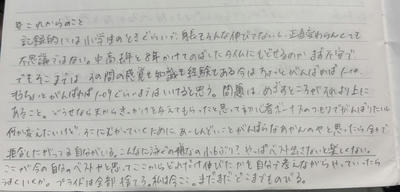 #これからのこと
記録的には小学生のときぐらいで、身長もそんな伸びてないし、正直変わらんくても
不思議ではない。中高5年と8年かけてのばしたタイムにもどせるのか まず不安で
でもそこまでは その間の感覚も知識も経験もある今はちょっとがんばれば
もうちょいとがんばれば ぐらいまではいけると思う。問題は、めざすところがそれより上に
あること。どうせなら夫からき、かけを与えてもらったと思って初心者ボーナスのつもりでがんばりたいし
何か変えたいけど、そこに向かっていくために、あ、しんどいことがんばらなあかんのやと思ってしまう今まで
拒否したがってる自分がいる。こんなに泳ぐの嫌なの小6ぶり?やっぱベスト出さないと楽しくない。
ここが今の自分のベストやと思って、ここからどれだけ伸びたかを自分で考えながらやっていったら
うまくいくか。プライドは全部捨てる。私は今ここ。まだまだどこまでものびる。